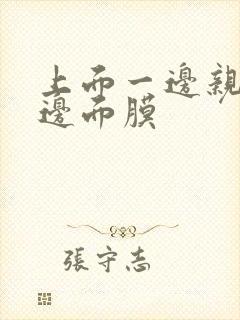 上而一邊親
邊而膜
張守志